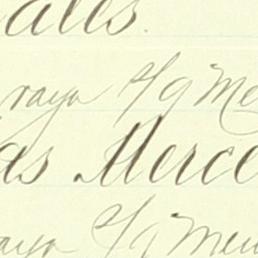 ales.
raya S/g Me
as Merce
raya S/g Mer